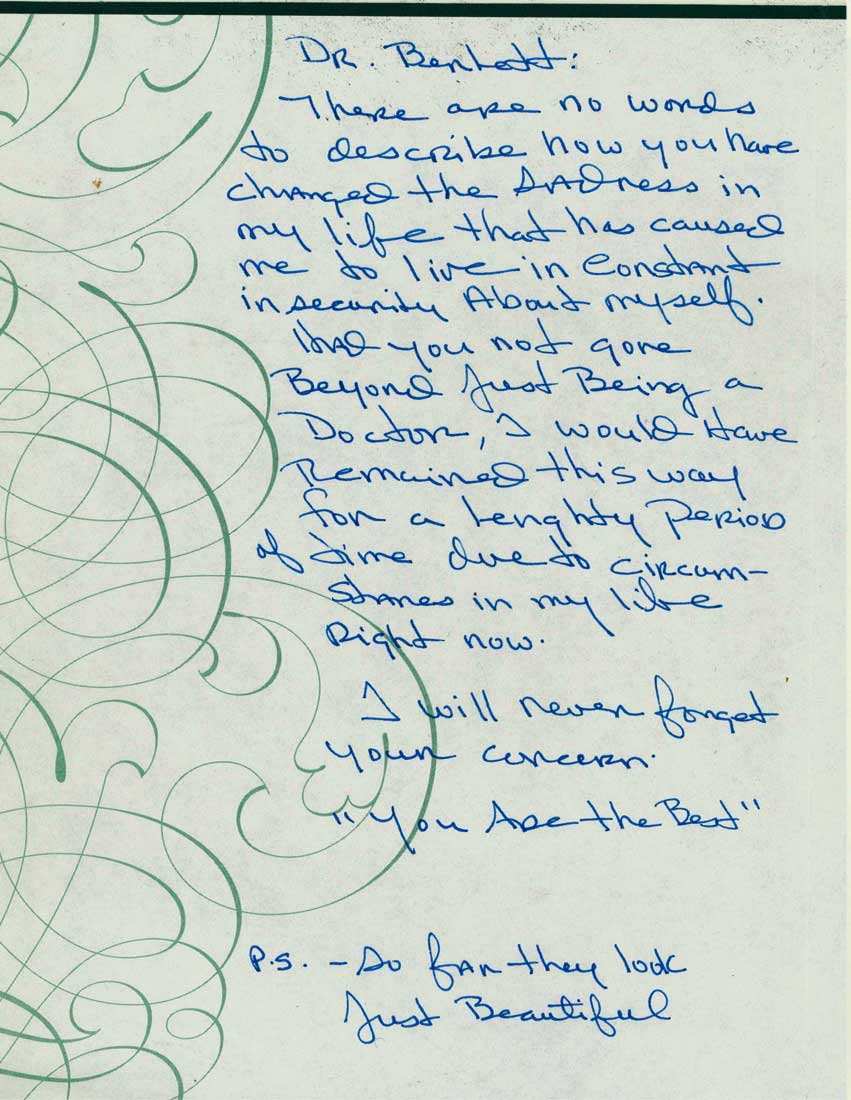 DR. Benhott:
There are no words
to describe how you have
changed the sadness in
my life that has caused
me to live in Constant
insecurity About myself.
Had you not gone
Beyond Just Being a
Doctor, I would Have
Remained this way
for a lenghty Period
of time due to circum-
stances in my life
Right now.
I will never forget
your concern.
"You Are the Best"
P.S. - So far they look
Just Beautiful